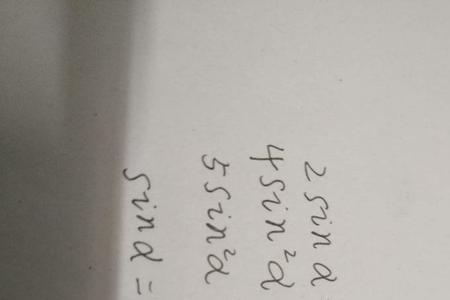 2 sin α
4 sin² α
5 sin² α
sin α =